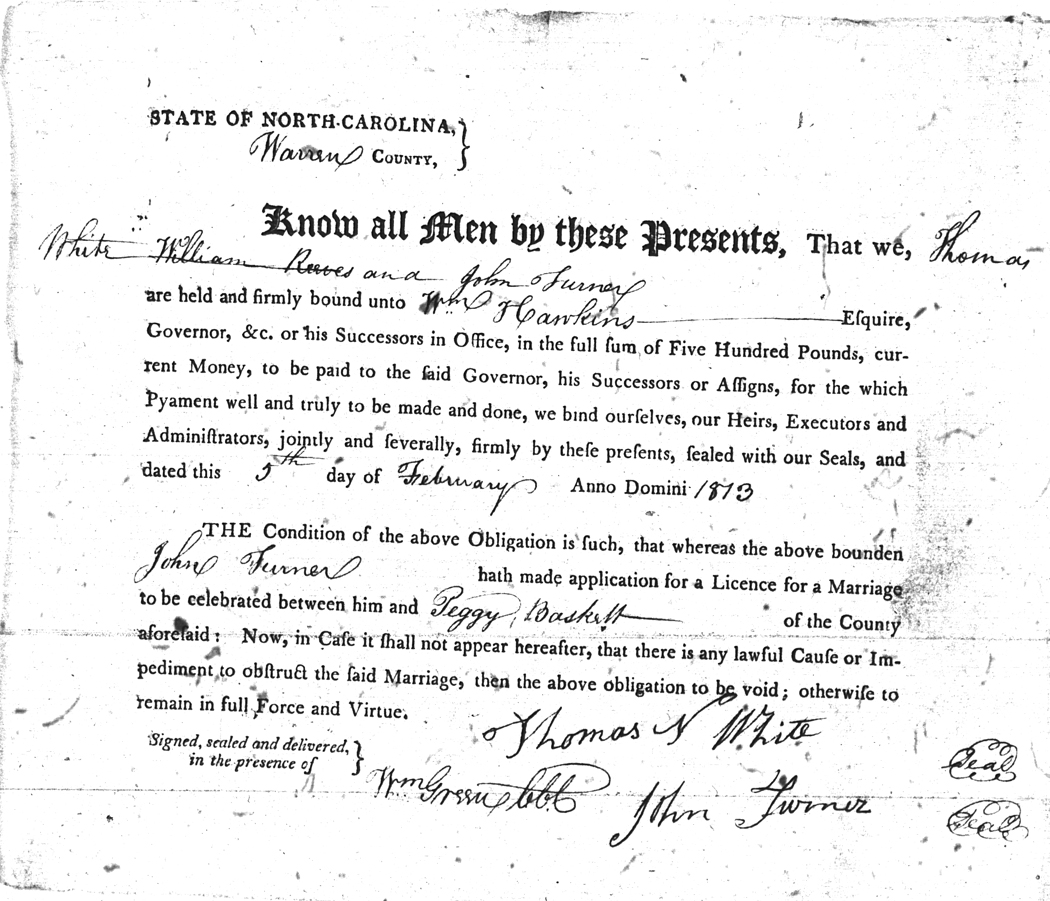 STATE OF NORTH-CAROLINA, }
Warren COUNTY,
Know all Men by these Presents, That we, Thomas
White William Reeves and John Turner
are held and firmly bound unto Wm Hawkins Eſquire,
Governor, &c. or his Successors in Office, in the full ſum of Five Hundred Pounds, cur-
rent Money, to be paid to the ſaid Governor, his Successors or Aſſigns, for the which
Pyament well and truly to be made and done, we bind ourſelves, our Heirs, Executors and
Adminiſtrators, jointly and ſeverally, firmly by theſe preſents, ſealed with our Seals, and
dated this 5th day of February Anno Domini 1813
THE Condition of the above Obligation is ſuch, that whereas the above bounden
John Turner hath made application for a Licence for a Marriage
to be celebrated between him and Peggy Baskett of the County
aforeſaid: Now, in Caſe it ſhall not appear hereafter, that there is any lawful Cauſe or Im-
pediment to obſtruct the ſaid Marriage, then the above obligation to be void; otherwiſe to
remain in full Force and Virtue.
Thomas N White
Signed, sealed and delivered, }
in the presence of
Seal
Wm Green
John Turner
Seal